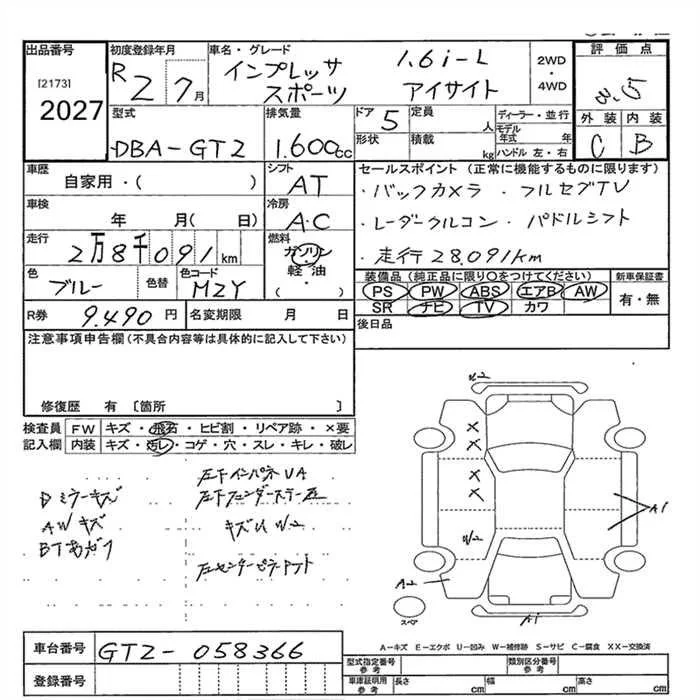 出品番号
[2173]
2027
初度登録年月
R2 7月
車名・グレード
インプレッサ 1.6i-L
スポーツ アイサイト
2WD
・
4WD
評価点
3.5
外装 内装
C B
型式
DBA-GT2
排気量
1.600cc
ドア 5
定員 人
形状
積載 kg
ディーラー・並行
モデル年式 年
ハンドル 左・右
車歴
自家用・( )
シフト
AT
車検
年 月( 日)
冷房
A.C
走行
2万8千091km
燃料
ガソリン
軽・油
( )
色
ブルー
色替
色コード
MZY
セールスポイント(正常に機能するものに限ります)
・バックカメラ ・フルセグTV
・レーダークルコン ・パドルシフト
・走行28,091km
装備品(純正品に限り○をつけてください)
PS PW ABS エアB AW
SR ナビ TV カワ
新車保証書
有・無
R券 9.490円
名変期限 月 日
後日品
注意事項申告欄(不具合内容等は具体的に記入して下さい)
修復歴 有 〔箇所 〕
検査員
記入欄
FW キズ・飛石・ヒビ割・リペア跡・×要
内装 キズ・汚レ・コゲ・穴・スレ・キレ・破レ
Dミラーキズ
AWキズ
左下インパネUA
左下フェンダーステー
キズU W2
W2
×
×
×
×
W2
A2
A1
A1
スペア
A−キズ E−エクボ U−凹み W−補修跡 S−サビ C−腐食 XX−交換済
車台番号
GT2-058366
登録番号
型式指定番号
参考
類別区分番号
参考
車庫証明用
参考
長さ cm
幅 cm
高さ cm